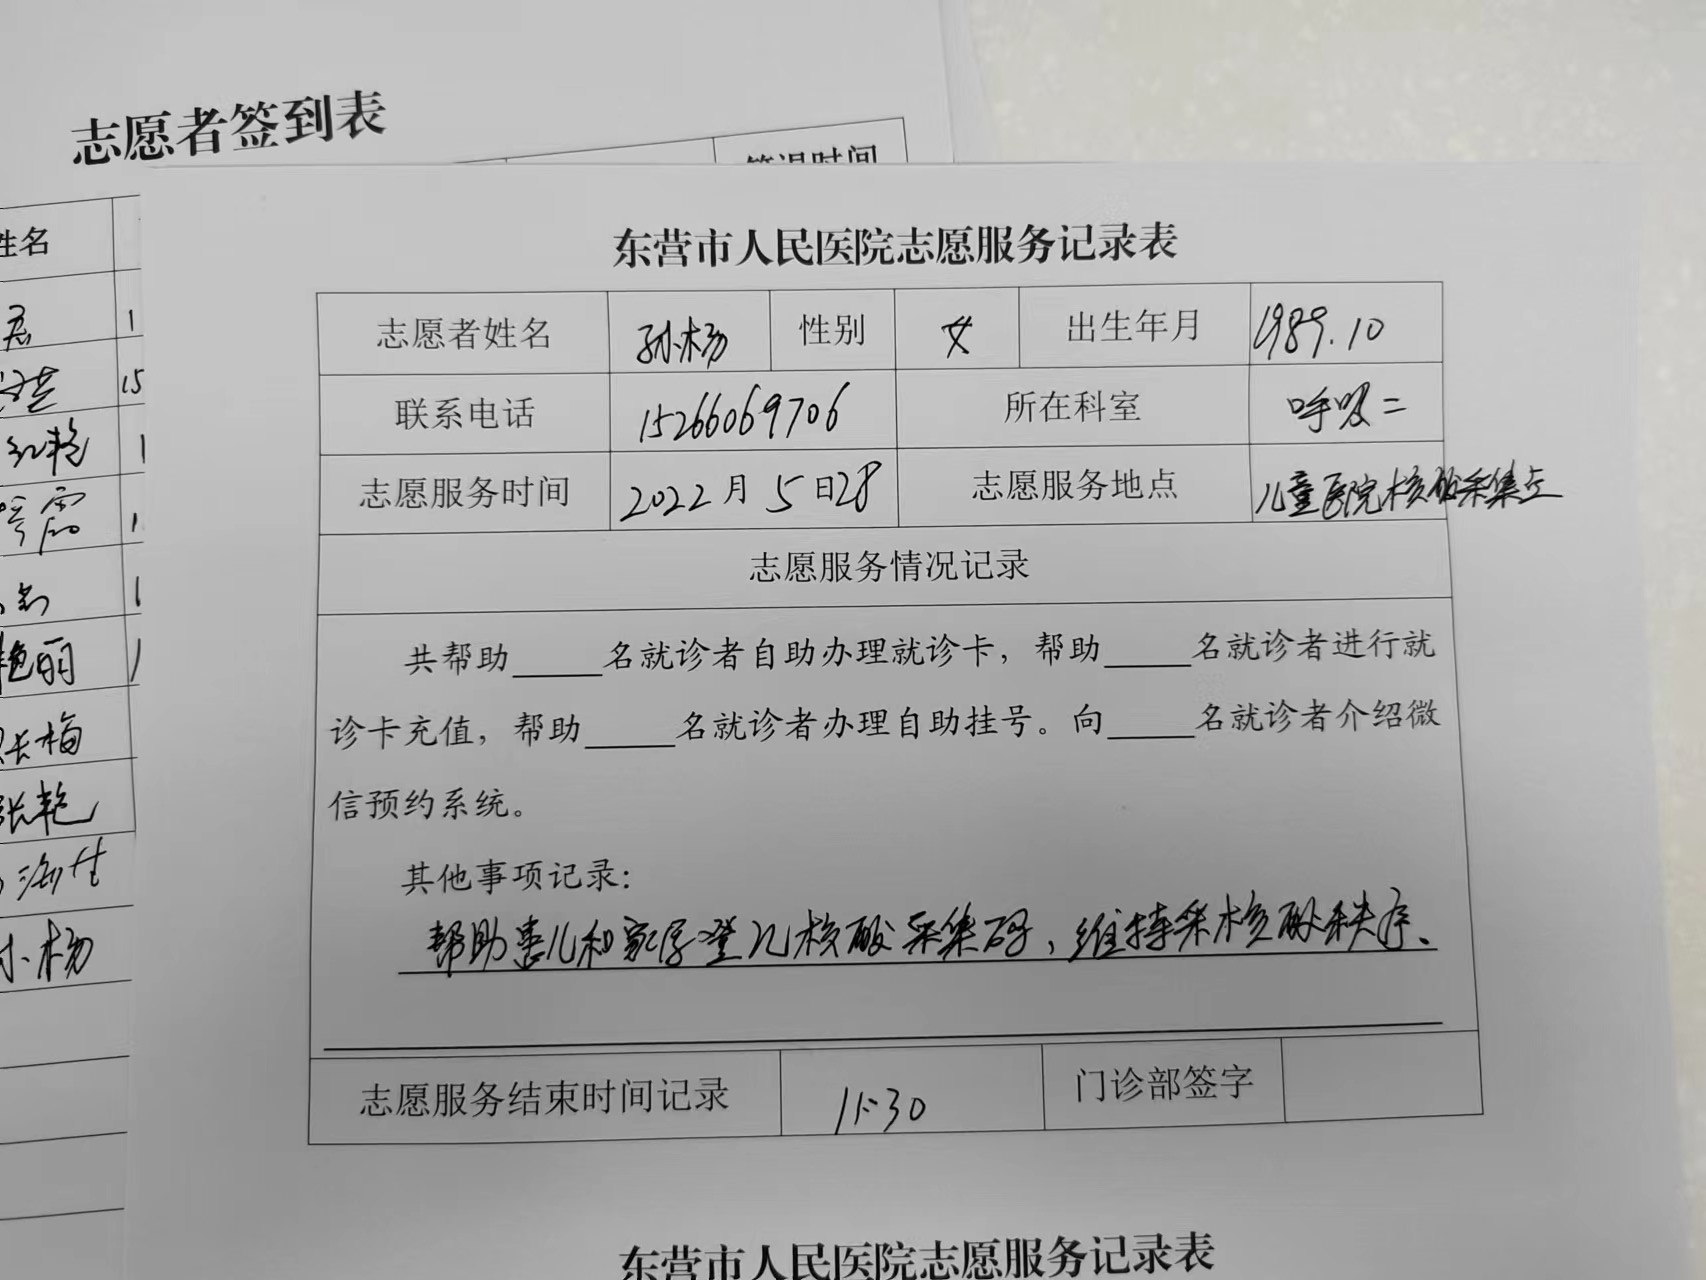 志愿者签到表
签退时间
姓名
红艳
艳丽
长梅
张艳
海仕
孙杨
东营市人民医院志愿服务记录表
志愿者姓名 孙杨 性别 女 出生年月 1989.10
联系电话 15266069706 所在科室 呼吸二
志愿服务时间 2022月5日28 志愿服务地点 儿童医院核酸采集点
志愿服务情况记录
共帮助_____名就诊者自助办理就诊卡，帮助_____名就诊者进行就
诊卡充值，帮助_____名就诊者办理自助挂号。向_____名就诊者介绍微
信预约系统。
其他事项记录：
帮助患儿和家属登记核酸采集码，维持采核酸秩序、
志愿服务结束时间记录 11:30 门诊部签字
东营市人民医院志愿服务记录表